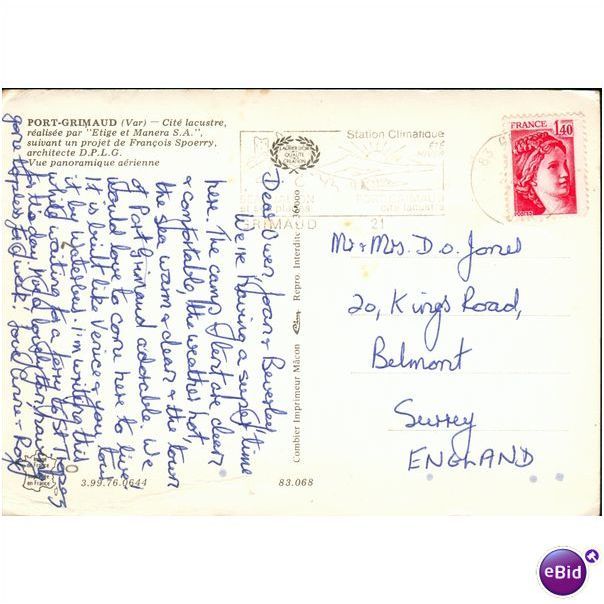 PORT-GRIMAUD (Var) — Cité lacustre,
réalisée par "Etige et Manera S.A.",
suivant un projet de François Spoerry,
architecte D.P.L.G.
Vue panoramique aérienne
Station Climatique
GRIMAUD
21
FRANCE 1,40
POSTES
Dear Owen, Joan & Beverley
We're having a super time
here. The camp & tent are clean
& comfortable, the weather hot,
the sea warm & clean & the town
of Port Grimaud adorable. We
would love to come here to live!
It is built like Venice & you
it by waterbus. I'm writing this
while waiting for a ferry to St Tropez
for the day. Rod
gone topless
love Anne & Rod
Combier Imprimeur Mâcon
Repro. Interdite
Mr & Mrs. D O. Jones
20, Kings Road,
Belmont
Surrey
ENGLAND
3.99.76.0644
83.068
eBid